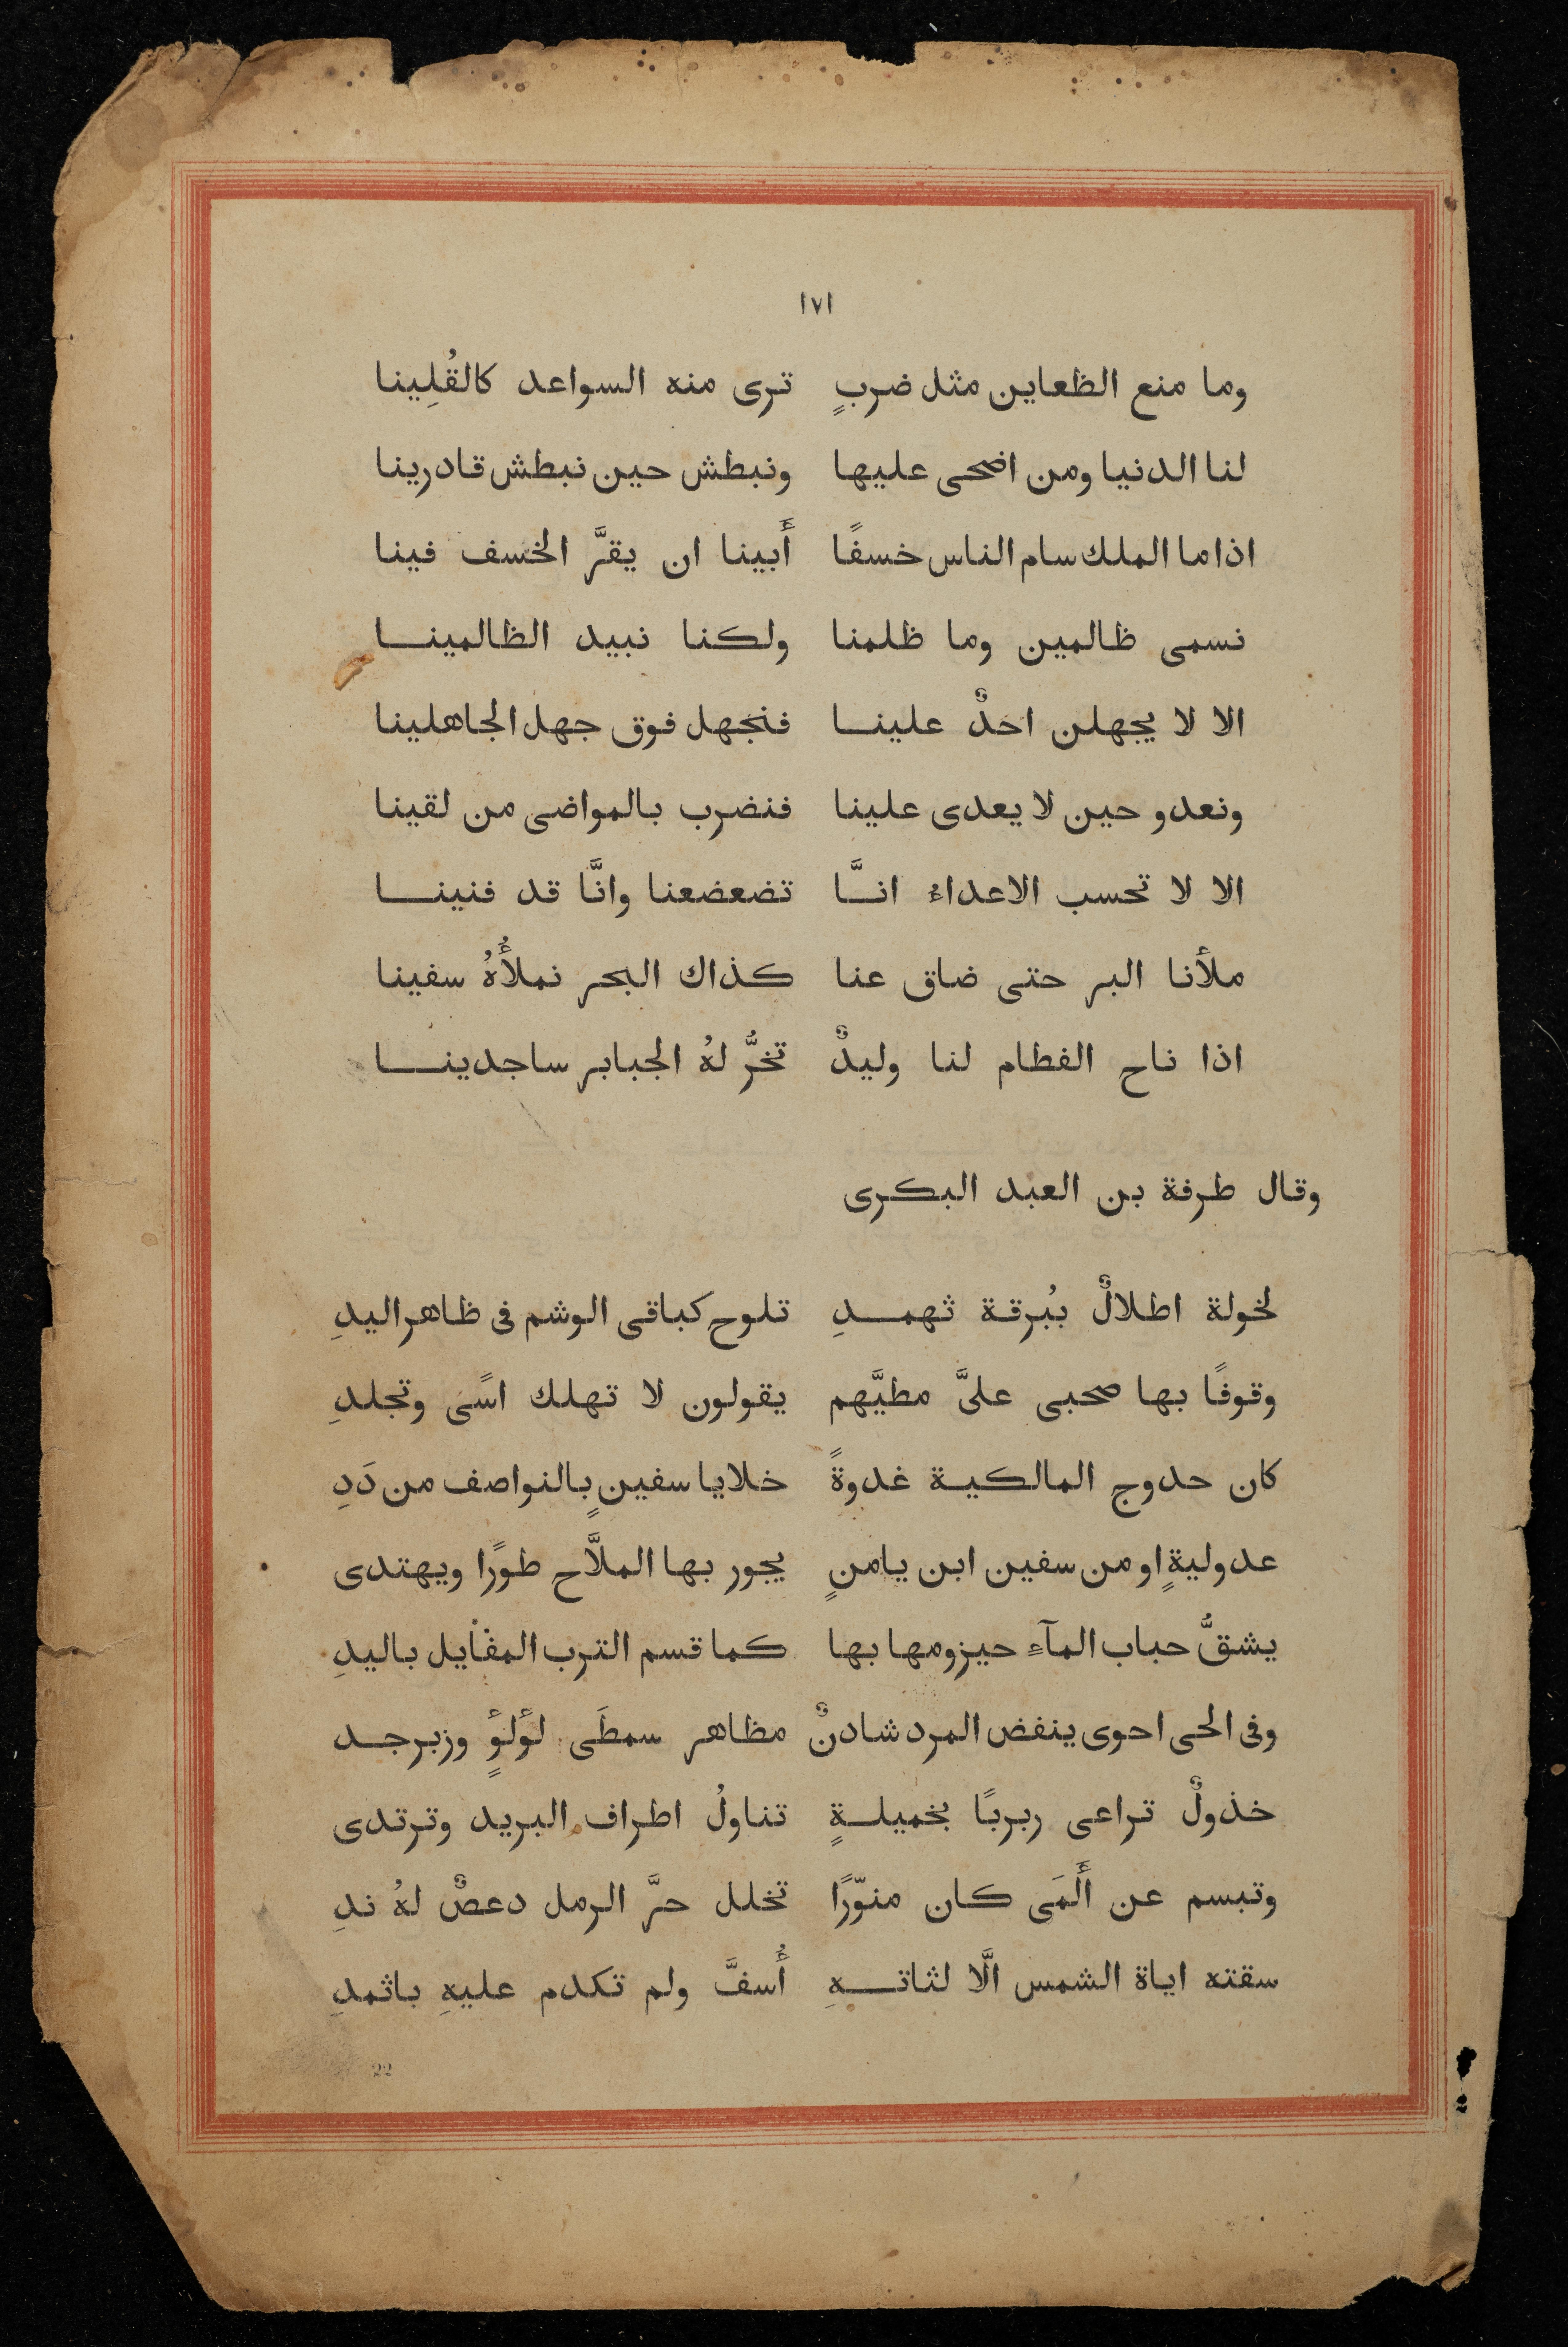 ١٧١
وما منع الظعاين مثل ضربٍ ترى منه السواعد كالقُلِينا
لنا الدنيا ومن اضحى عليها ونبطش حين نبطش قادرينا
اذا ما الملك سام الناس خسفًا أَبينا ان يقرَّ الخسف فينا
نسمى ظالمين وما ظلمنا ولكنا نبيد الظالمينا
الا لا يجهلن احدٌ علينا فنجهل فوق جهل الجاهلينا
ونعدو حين لا يعدى علينا فنضرب بالمواضى من لقينا
الا لا تحسب الاعداءُ انَّا تضعضعنا وانَّا قد فنينا
ملأنا البر حتى ضاق عنا كذاك البحر نملأُهُ سفينا
اذا ناح الفطام لنا وليدٌ تخرُّ لهُ الجبابر ساجدينا
وقال طرفة بن العبد البكرى
لخولة اطلالٌ ببُرقة ثهمدِ تلوح كباقى الوشم فى ظاهر اليدِ
وقوفًا بها صحبى علىَّ مطيَّهم يقولون لا تهلك اسًى وتجلدِ
كان حدوج المالكية غدوةً خلايا سفينٍ بالنواصف من دَدِ
عدوليةٍ او من سفين ابن يامنٍ يجور بها الملَّاح طورًا ويهتدى
يشقُّ حباب المآءِ حيزومها بها كما قسم الترب المفايل باليدِ
وفى الحى احوى ينفض المرد شادنٌ مظاهر سمطَى لؤلؤٍ وزبرجد
خذولٌ تراعى ربربًا بخميلةٍ تناولُ اطراف البريد وترتدى
وتبسم عن أَلمَى كان منوّرًا تخلل حرَّ الرمل دعصٌ لهُ ندِ
سقته اياة الشمس الَّا لثاتهِ أُسفَّ ولم تكدم عليهِ باثمدِ
22